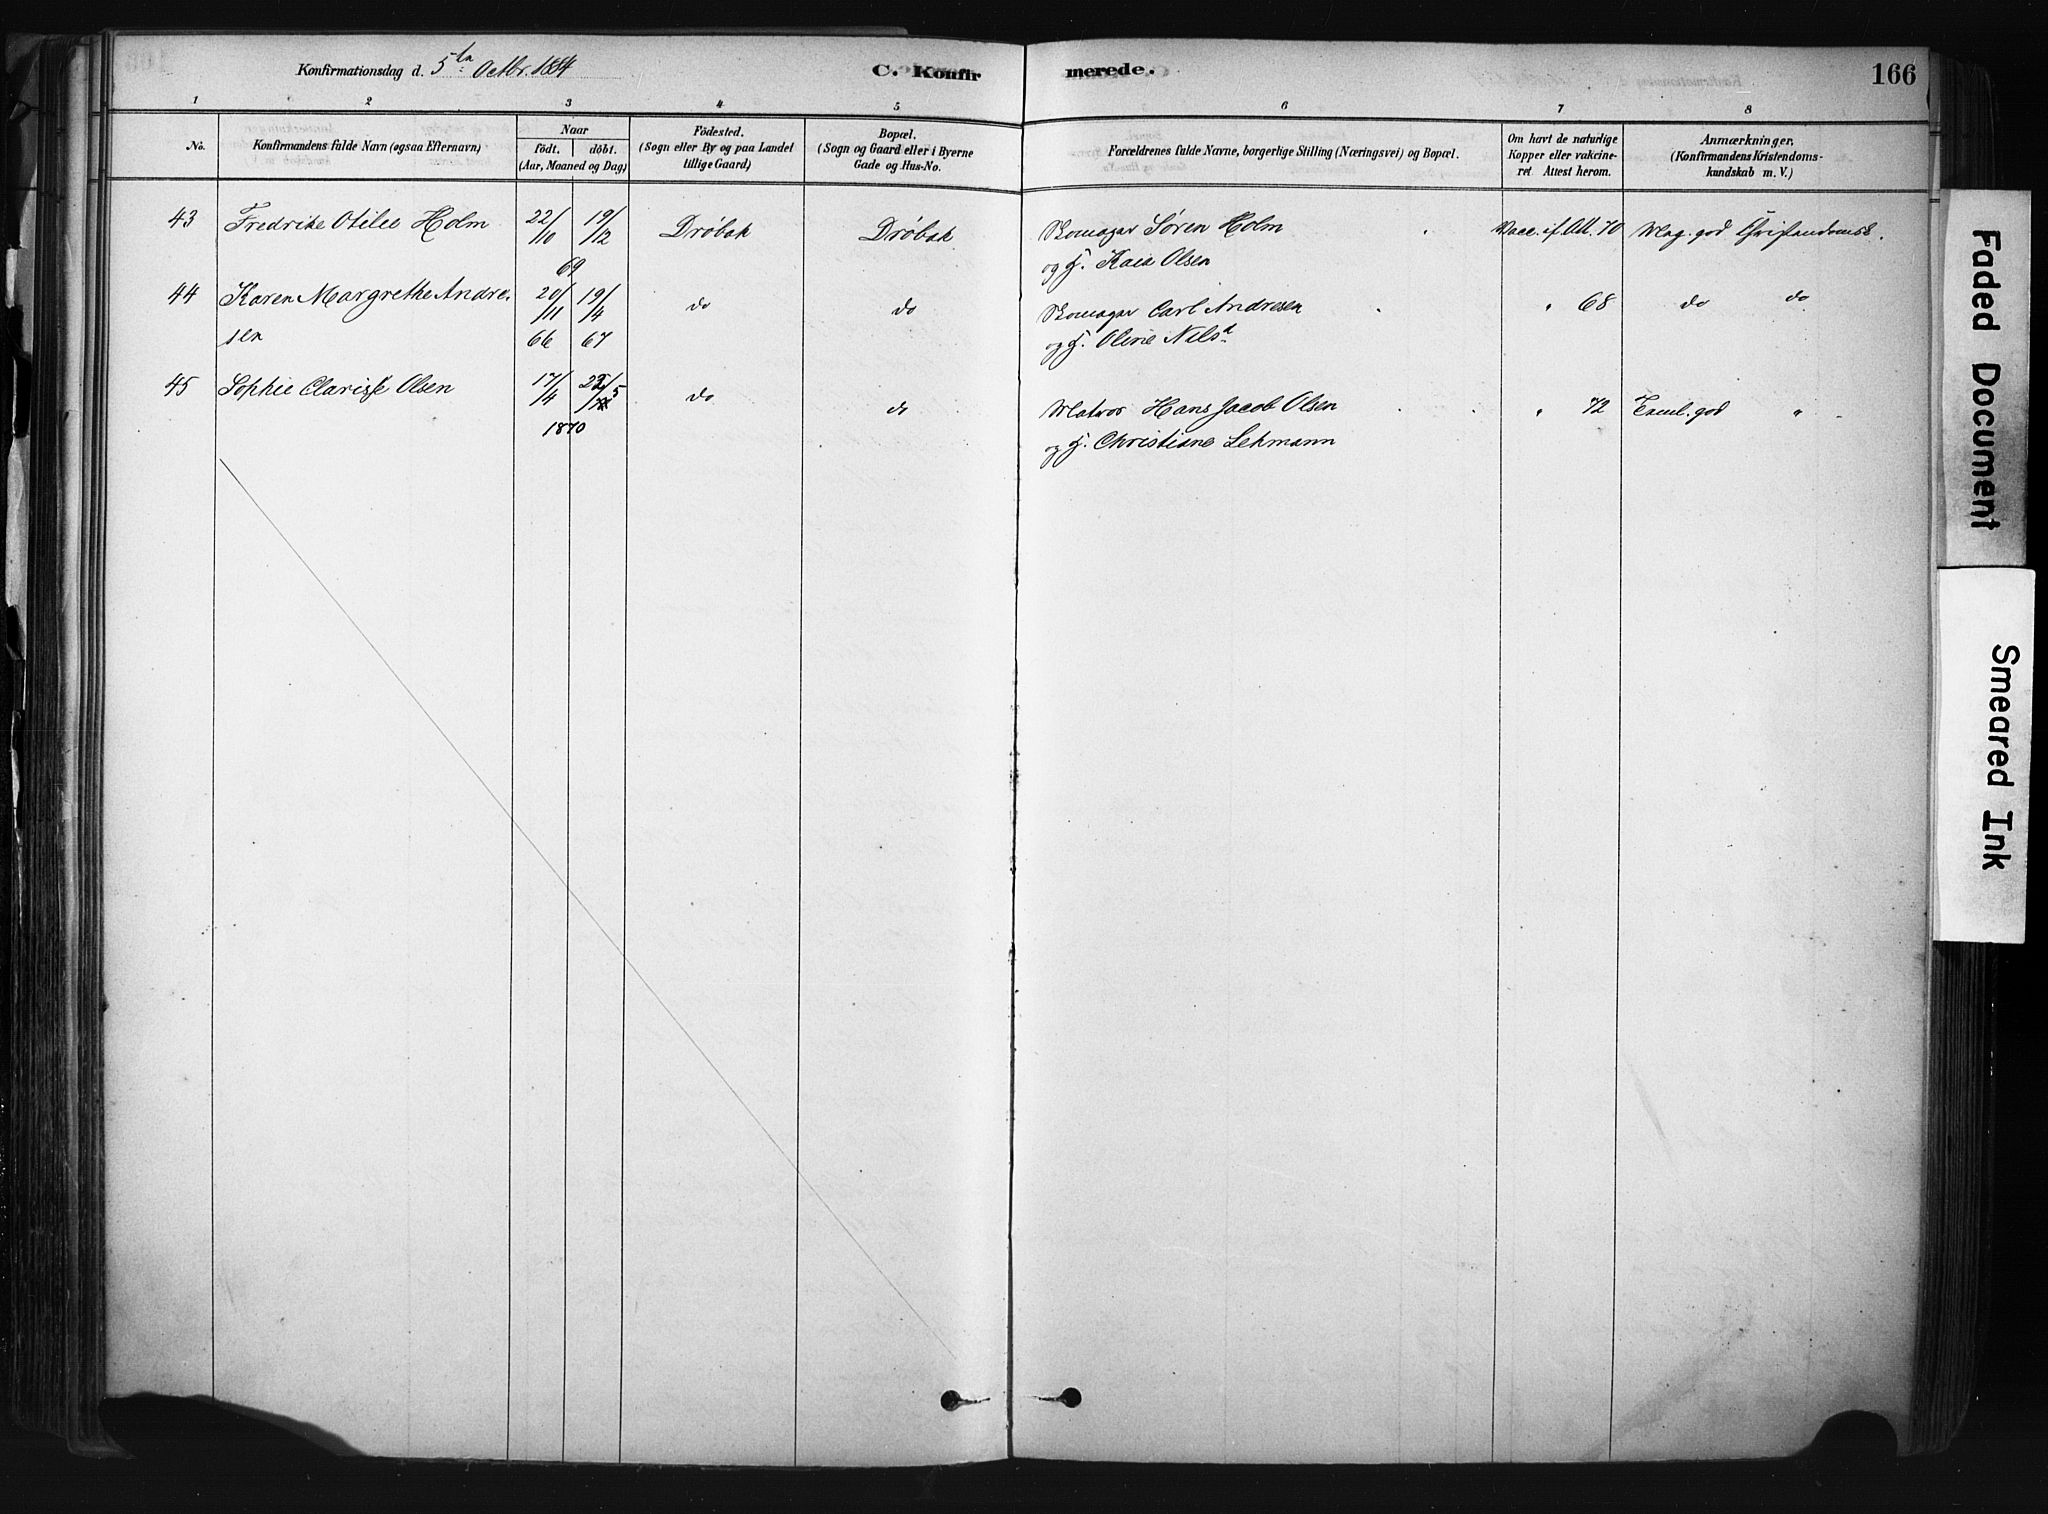 Konfirmationsdag d. 5te Octbr. 1884
C. Konfirmerede.
166
1 2 3 4 5 6 7 8
No.
Konfirmandens fulde Navn (ogsaa Efternavn)
Naar
Födt. döbt.
(Aar, Maaned og Dag)
Födested.
(Sogn eller By og paa Landet
tillige Gaard)
Bopæl.
(Sogn og Gaard eller i Byerne
Gade og Hus-No.
Forældrenes fulde Navne, borgerlige Stilling (Næringsvei) og Bopæl.
Om havt de naturlige
Kopper eller vakcine-
ret Attest herom.
Anmærkninger.
(Konfirmandens Kristendoms-
kundskab m. V.)
43 Fredrike Otilie Holm 22/10 19/12 Drøbak Drøbak Skomager Søren Holm Vacc. if. Att. 70 Mag. god Christendomsk.
69 og H. Kaia Olsen
44 Karen Margrethe Andre- 20/11 19/4 do do Skomager Carl Andresen " 68 do do
sen 66 67 og H. Oline Nilsd
45 Sophie Clarisse Olsen 17/4 22/5 do do Matros Hans Jacob Olsen " 72 Teml. god "
1870 og H. Christiane Lehmann
Faded Document
Smeared Ink